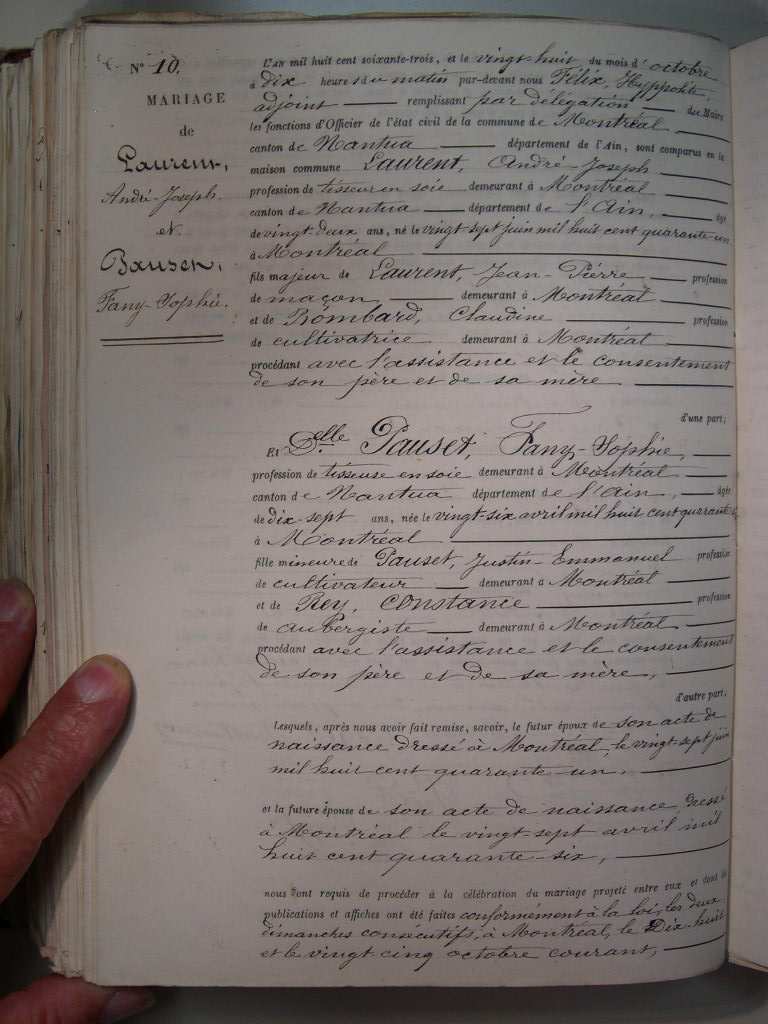 N° 10.
MARIAGE
de
Laurent,
André-Joseph
et
Pauset,
Fany-Sophie.
L'AN mil huit cent soixante-trois, et le vingt-huit du mois d'octobre
à dix heures du matin par-devant nous Félix, Hyppolite,
adjoint remplissant par délégation du Maire
les fonctions d'Officier de l'état civil de la commune de Montréal
canton de Nantua département de l'Ain, sont comparus en la
maison commune Laurent, André-Joseph
profession de tisseur en soie demeurant à Montréal
canton de Nantua département de l'Ain, âgé
de vingt-deux ans, né le vingt sept juin mil huit cent quarante-un
à Montréal
fils majeur de Laurent, Jean-Pierre profession
de maçon, demeurant à Montréal
et de Rombard, Claudine profession
de cultivatrice demeurant à Montréal
procédant avec l'assistance et le consentement
de son père et de sa mère
d'une part;
Et Delle Pauset, Fany-Sophie,
profession de tisseuse en soie demeurant à Montréal
canton de Nantua département de l'Ain, âgée
de dix-sept ans, née le vingt-six avril mil huit cent quarante
à Montréal
fille mineure de Pauset, Justin-Emmanuel profession
de cultivateur demeurant à Montréal
et de Rey, Constance profession
de aubergiste demeurant à Montréal
procédant avec l'assistance et le consentement
de son père et de sa mère,
d'autre part,
Lesquels, après nous avoir fait remise, savoir, le futur époux de son acte de
naissance dressé à Montréal, le vingt-sept juin
mil huit cent quarante-un,
et la future épouse de son acte de naissance dressé
à Montréal le vingt-sept avril mil
huit cent quarante-six,
nous ont requis de procéder à la célébration du mariage projeté entre eux et dont les
publications et affiches ont été faites conformément à la loi, les deux
dimanches consécutifs, à Montréal, le Dix-huit
et le vingt cinq octobre courant,